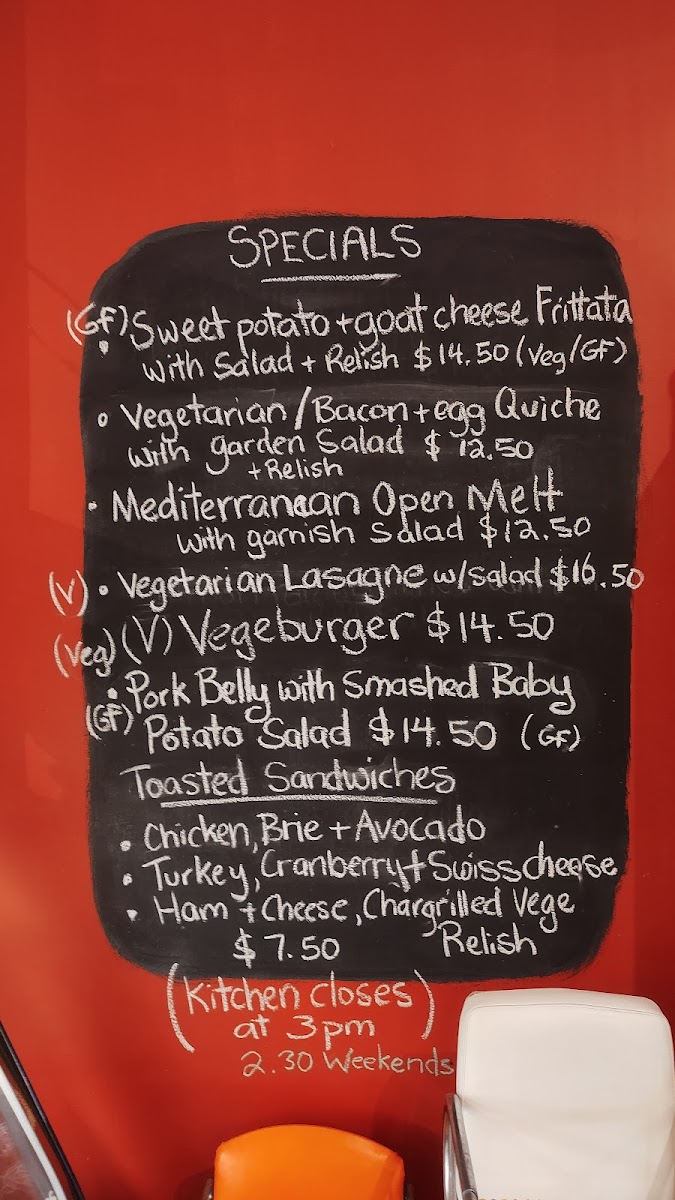 SPECIALS
(Gf) • Sweet potato + goat cheese Frittata
with Salad + Relish $14.50 (Veg/GF)
• Vegetarian/Bacon + egg Quiche
with garden Salad $12.50
+ Relish
• Mediterranean Open Melt
with garnish salad $12.50
(V) • Vegetarian Lasagne w/salad $16.50
(Veg) (V) Vegeburger $14.50
• Pork Belly with Smashed Baby
(GF) Potato Salad $14.50 (GF)
Toasted Sandwiches
• Chicken, Brie + Avocado
• Turkey, Cranberry + Swiss cheese
• Ham + Cheese, Chargrilled Vege
$7.50 Relish
(Kitchen closes
at 3pm)
2.30 Weekends